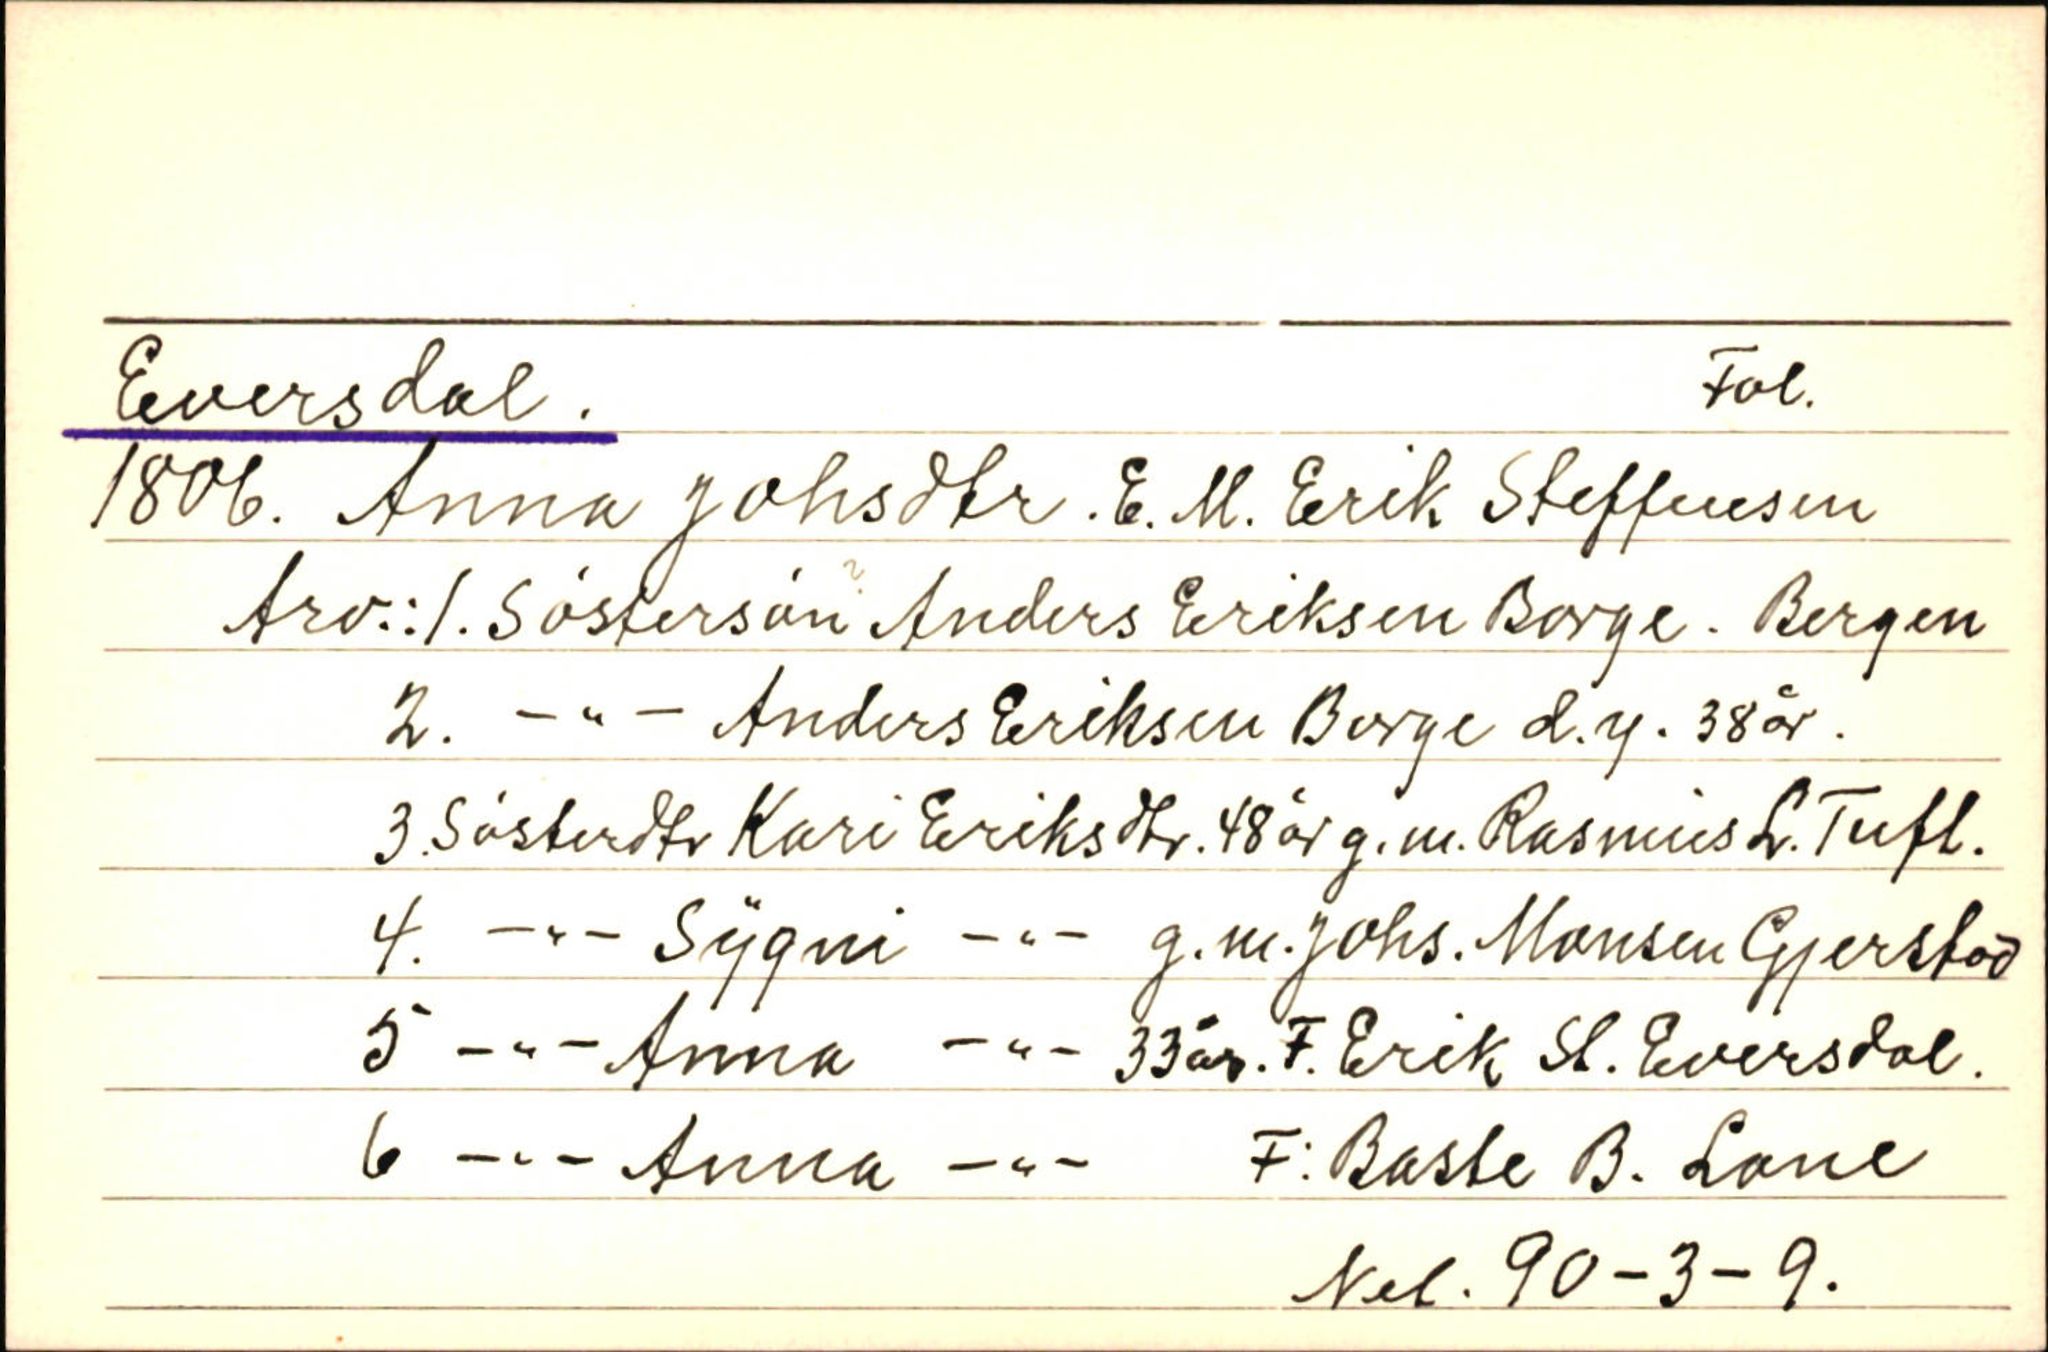 Eversdal. Fol.
1806. Anna Johsdtr. E. M. Erik Steffensen
Arv.: 1. Söstersön? Anders Eriksen Borge. Bergen
2. -"- Anders Eriksen Borge d.y. 38 år.
3. Sösterdtr Kari Eriksdtr. 48 år g.m. Rasmus L. Tuft.
4. -"- Sÿgni -"- g.m. Johs. Monsen Gjerstad
5 -"- Anna -"- 33 år. F. Erik St. Eversdal.
6 -"- Anna -"- F: Baste B. Lane
Nel. 90-3-9.